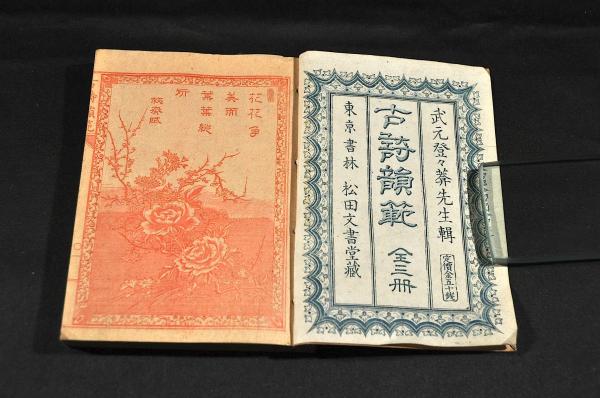 武元登々菴先生輯
定價金五十銭
古詩韻範 全三冊
東京書林 松田文書堂藏
花花争
美而
葉葉総
所